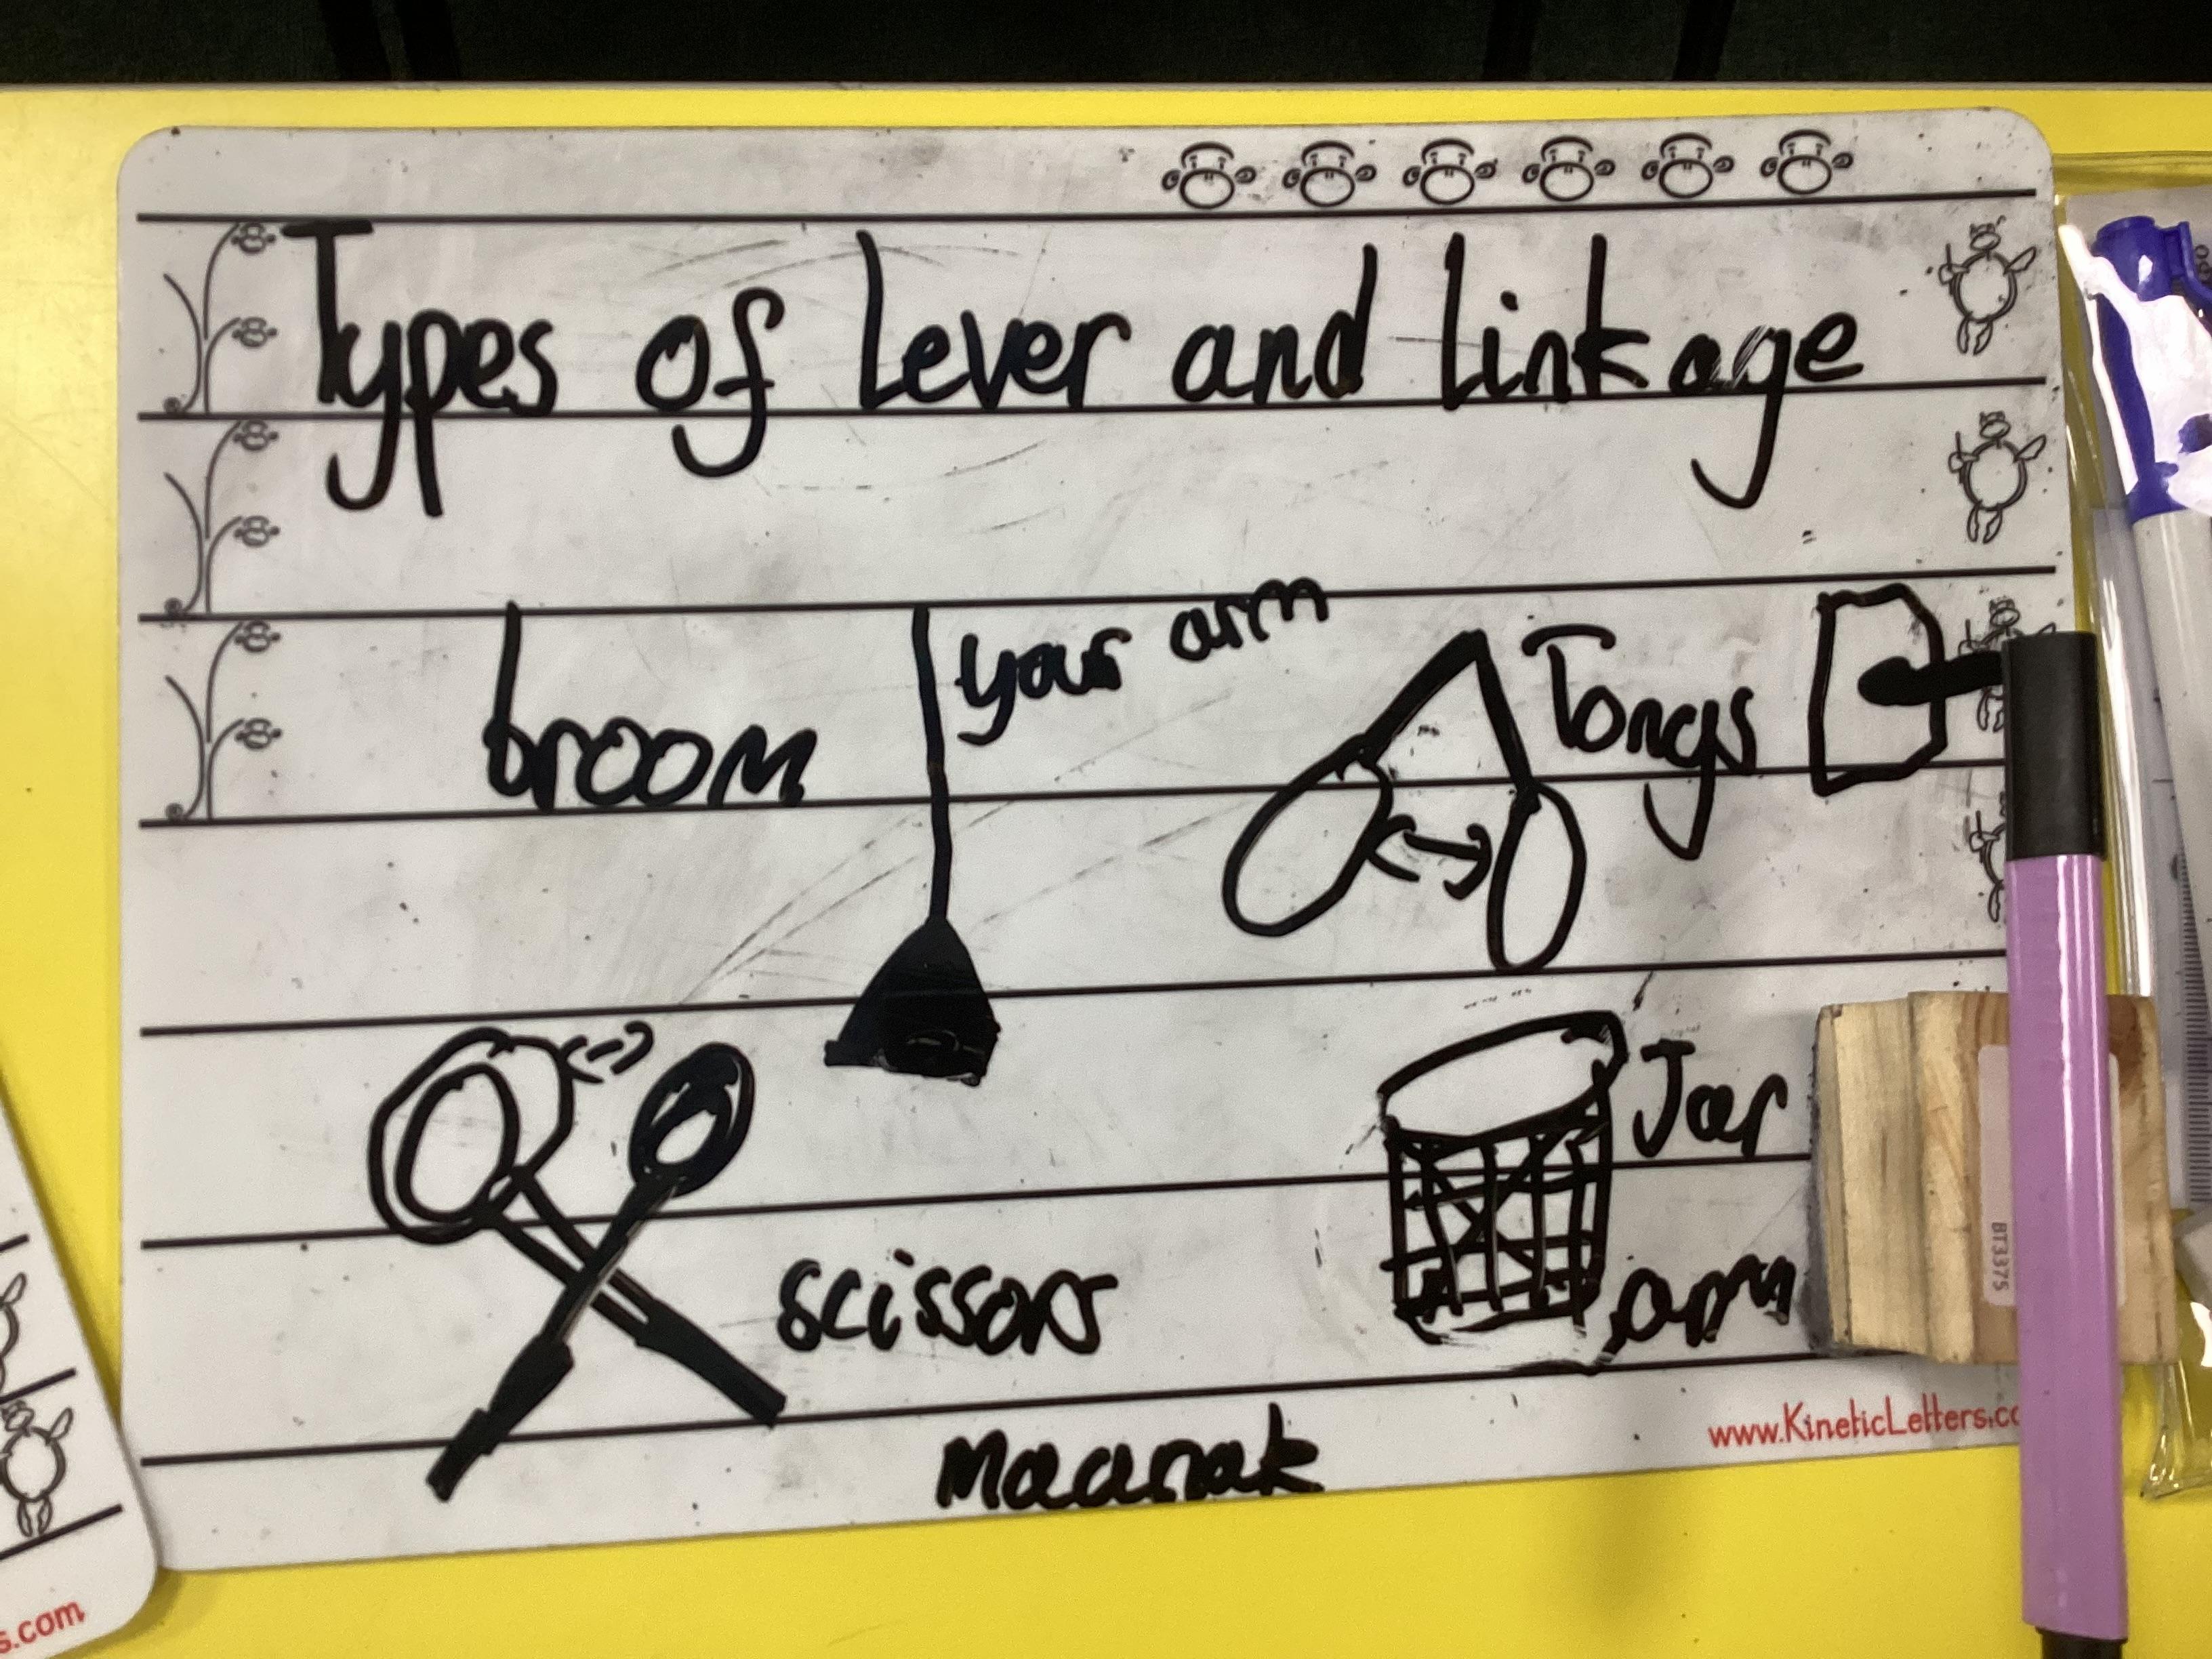 Types of lever and linkage
your arm
broom
Tongs
Jar
scissors
arm
www.KineticLetters.co
Maanak
BT3375
s.com